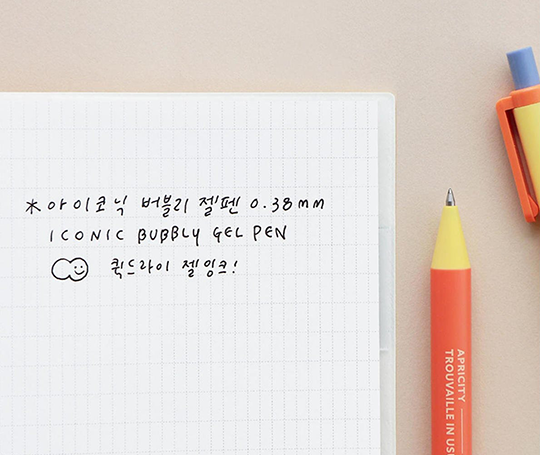 *아이코닉 버블리 젤펜 0.38mm
ICONIC BUBBLY GEL PEN
퀵드라이 젤잉크!
APRICITY
TROUVAILLE IN